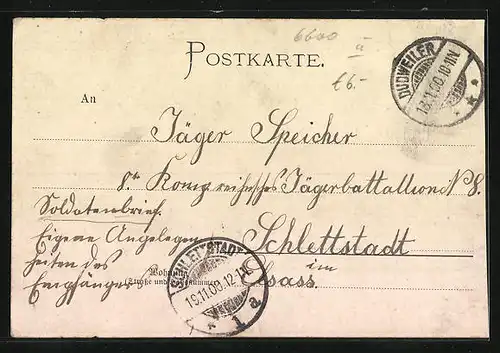 6600
ü
POSTKARTE.
£6.-
DUDWEILER
18.11.00.10-11N
An
Jäger Speicher
8te Komp. rheinisches Jägerbattallion N 8.
Soldatenbrief.
Eigene Angelegen
heiten des
Empfängers
Schlettstadt
im
Elsass.
Wohnung
(Straße und Hausnummer)
SCHLETTSTADT
19.11.00.12-1N
* 1 a